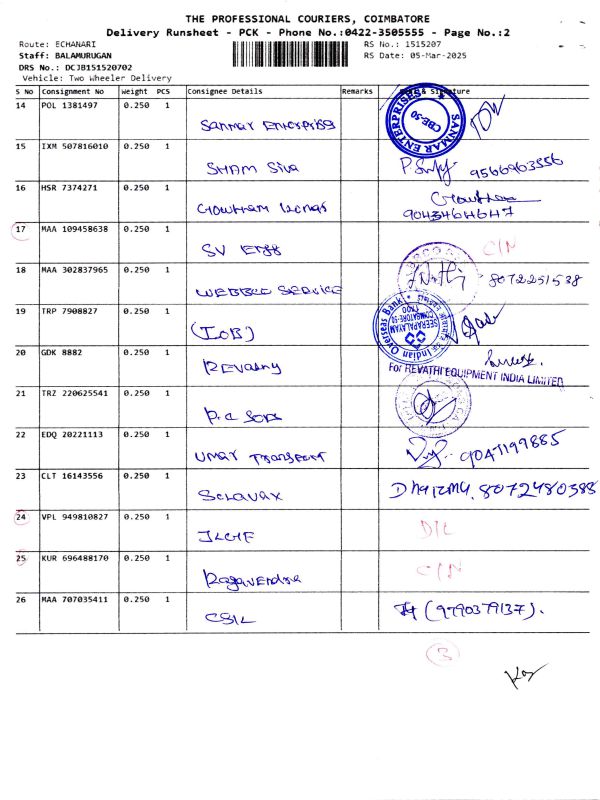 THE PROFESSIONAL COURIERS, COIMBATORE
Delivery Runsheet - PCK - Phone No.:0422-3505555 - Page No.:2
Route: ECHANARI RS No.: 1515207
Staff: BALAMURUGAN RS Date: 05-Mar-2025
DRS No.: DCJB151520702
Vehicle: Two Wheeler Delivery
S No Consignment No Weight PCS Consignee Details Remarks & Signature
14 POL 1381497 0.250 1
Sanmar Enterprises
SANMAR ENTERPRISES CBE-50
15 IXM 507816010 0.250 1
SHAM Siva 9566963556
16 HSR 7374271 0.250 1
Gowtham
9043464647
17 MAA 109458638 0.250 1
SV Engg C/N
18 MAA 302837965 0.250 1
WEBBCO SERVICE 8072251538
19 TRP 7908827 0.250 1
(IOB)
Indian Overseas Bank
20 GDK 8882 0.250 1
Revathy
For REVATHI EQUIPMENT INDIA LIMITED
21 TRZ 220625541 0.250 1
P.C Sons
22 EDQ 20221113 0.250 1
UMAR Transport 9047199885
23 CLT 16143556 0.250 1
Selavax 8072480388
24 VPL 949810827 0.250 1
D/L
25 KUR 696488170 0.250 1
Ragavendra C/N
26 MAA 707035411 0.250 1
CSIL (9790379137).
3